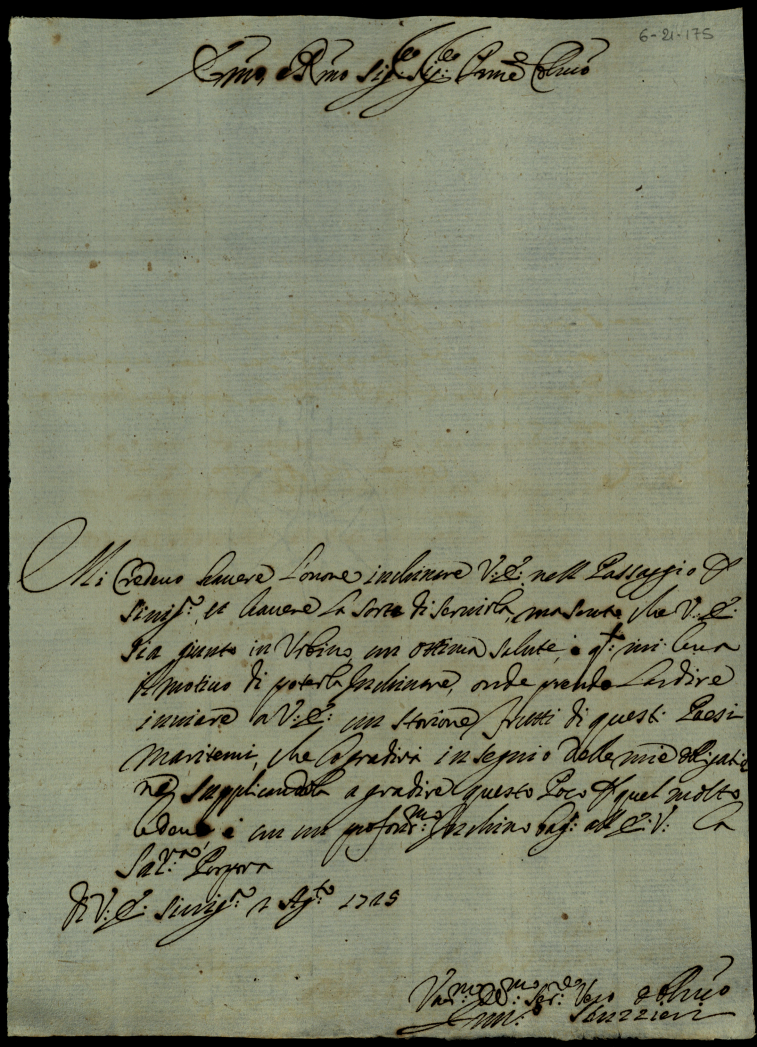 6-21-175
Emo, e Rmo Sigre Sigre Prone Colmo
Mi Credevo havere Lonore inchinare V: E: nell Passaggio
Sinigr. et havere La Sorte di Servirla, ma sento che V: E:
sia giunto in Urbino con ottima Salute, e mi leva
il motivo di poterla Inchinare, onde prendo Lardire
inviare a V: E: un Storione, frutti di questi Paesi
Maritimi, che lo gradirà in segnio delle mie obligatio
ni, Supplicandola a gradire questo Poco quel molto
le devo, e con un profondmo Inchino all E: V: la
Porpora
Di V: E: Sinigr. 1 Agto 1725
Servre Vero